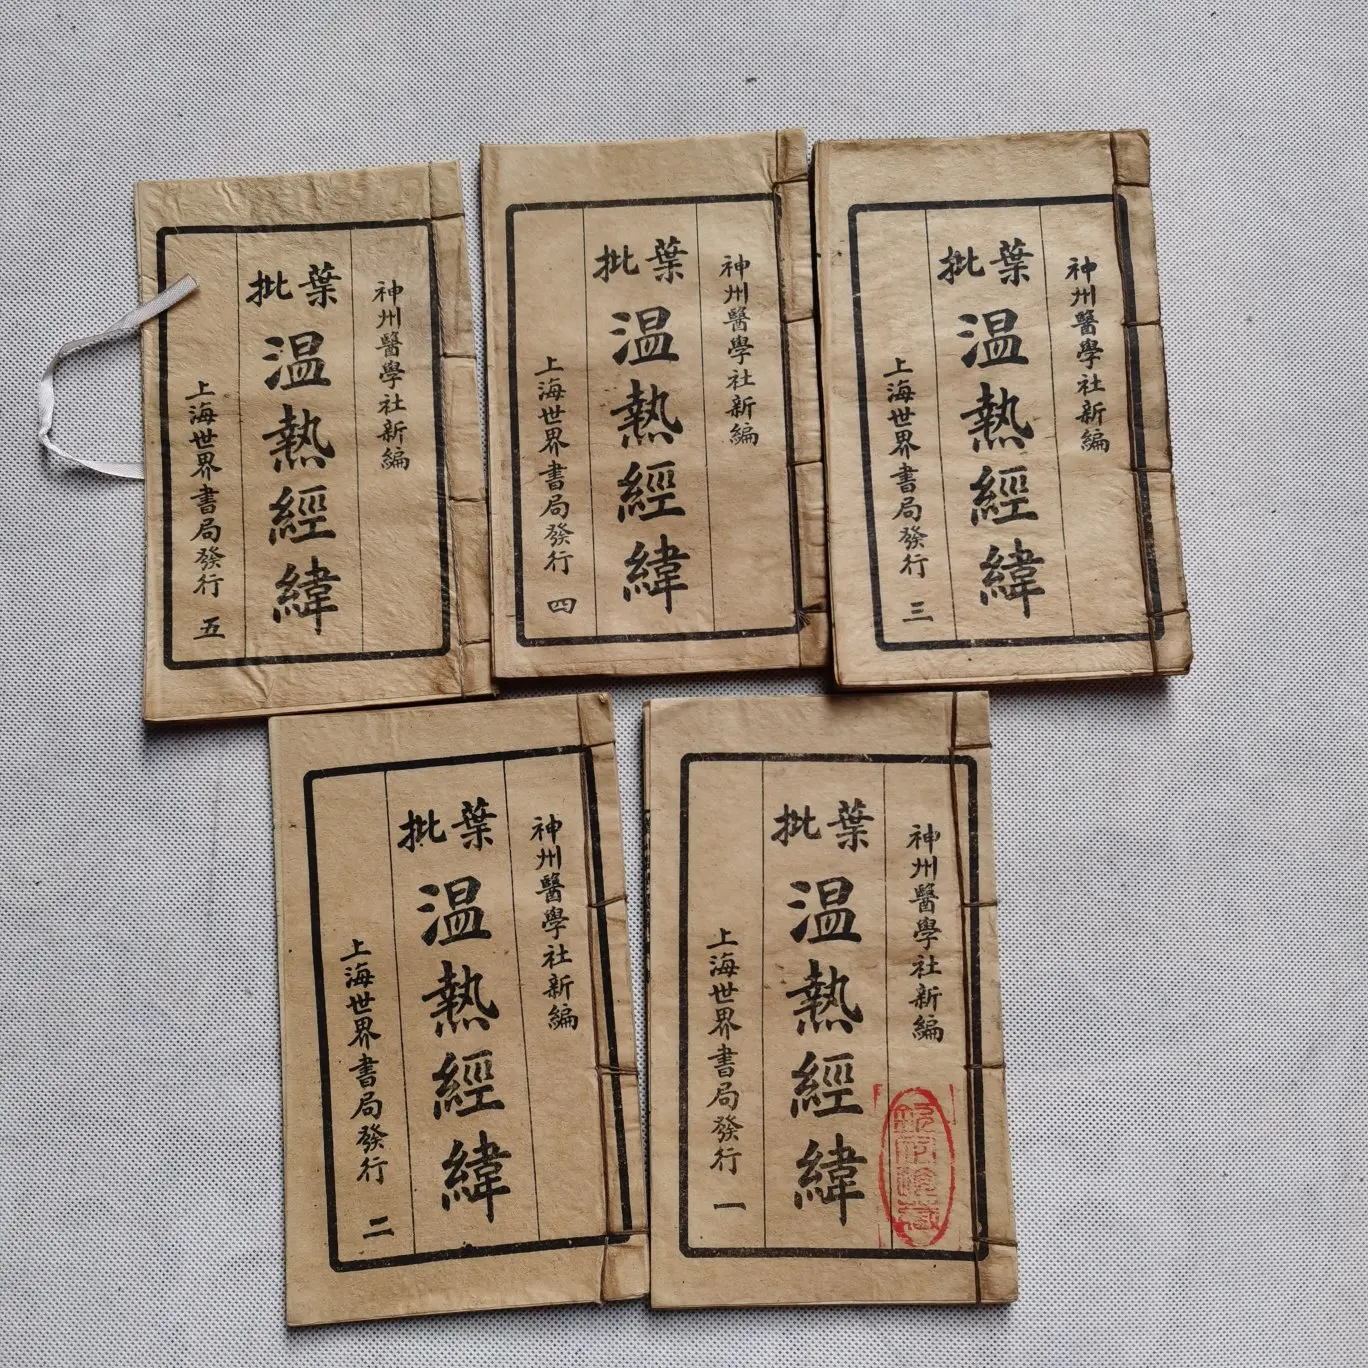 神州醫學社新編
葉批
温熱經緯
上海世界書局發行 三
神州醫學社新編
葉批
温熱經緯
上海世界書局發行 四
神州醫學社新編
葉批
温熱經緯
上海世界書局發行 五
神州醫學社新編
葉批
温熱經緯
上海世界書局發行 一
神州醫學社新編
葉批
温熱經緯
上海世界書局發行 二